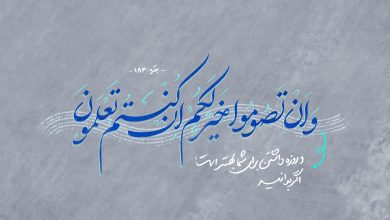 - بقره ۱۸۴ -
وَاَنْ تَصُومُوا خَیْرٌ لَکُمْ اِنْ کُنْتُمْ تَعْلَمُونَ
و روزه داشتن برای شما بهتر است
اگر بدانید